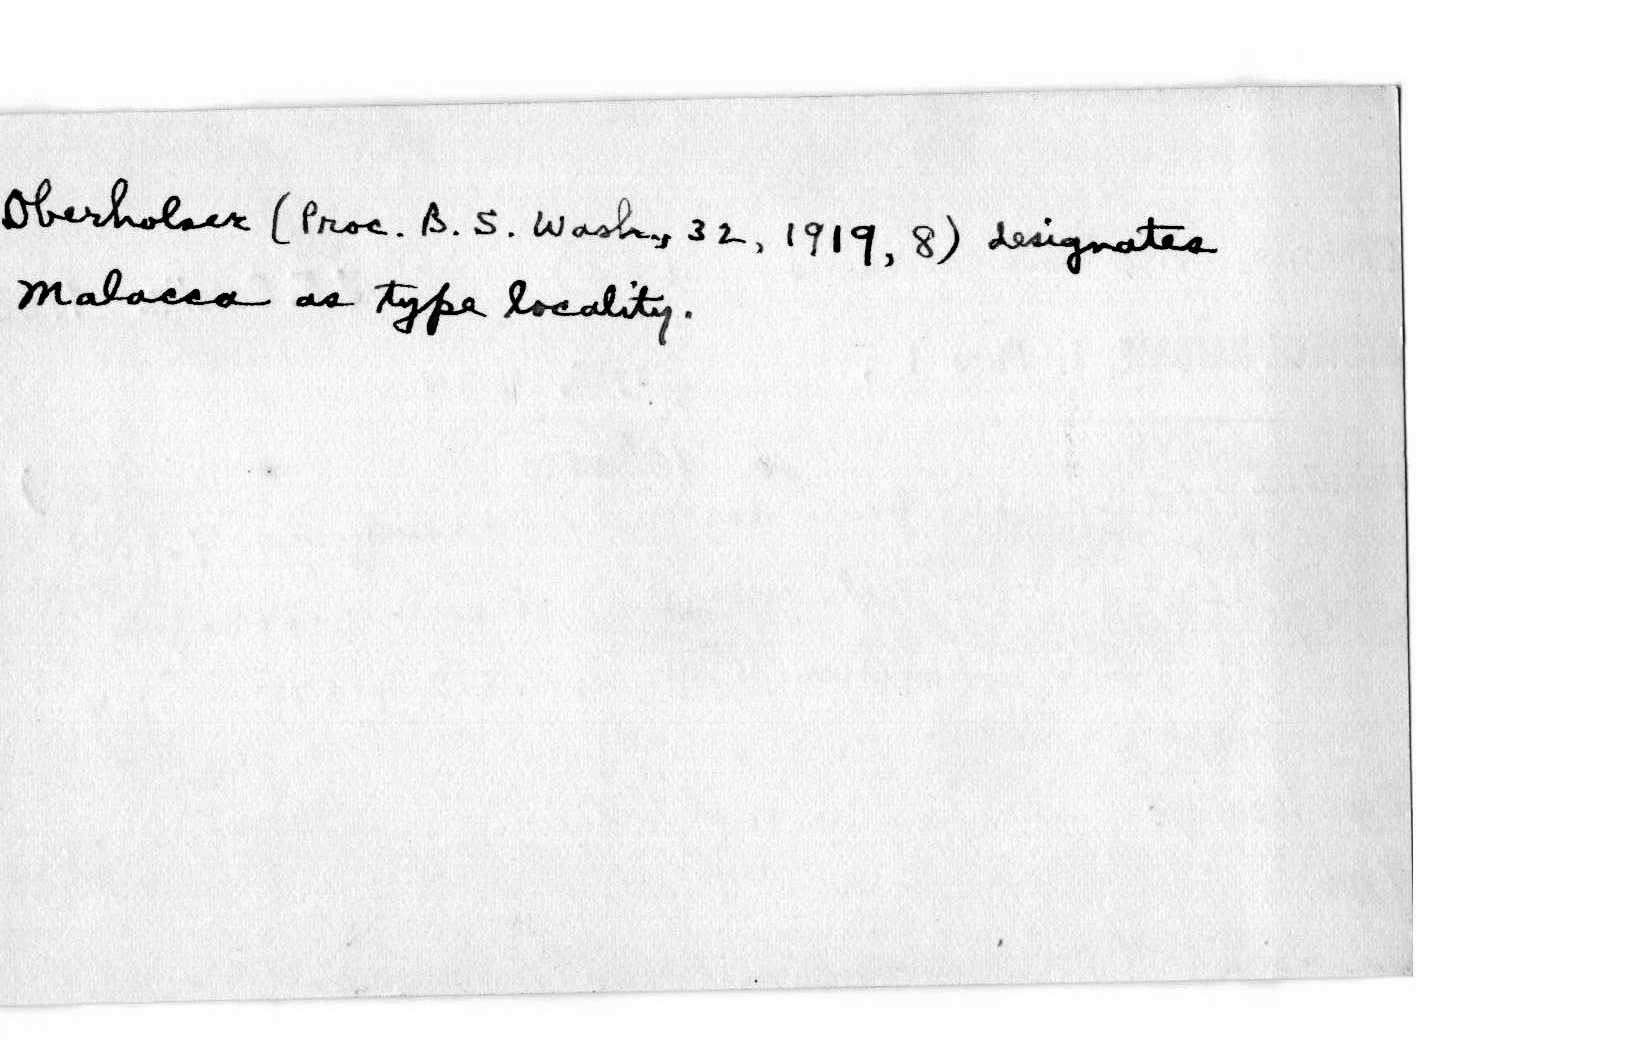 Oberholser (Proc. B. S. Wash., 32, 1919, 8) designates
Malacca as type locality.